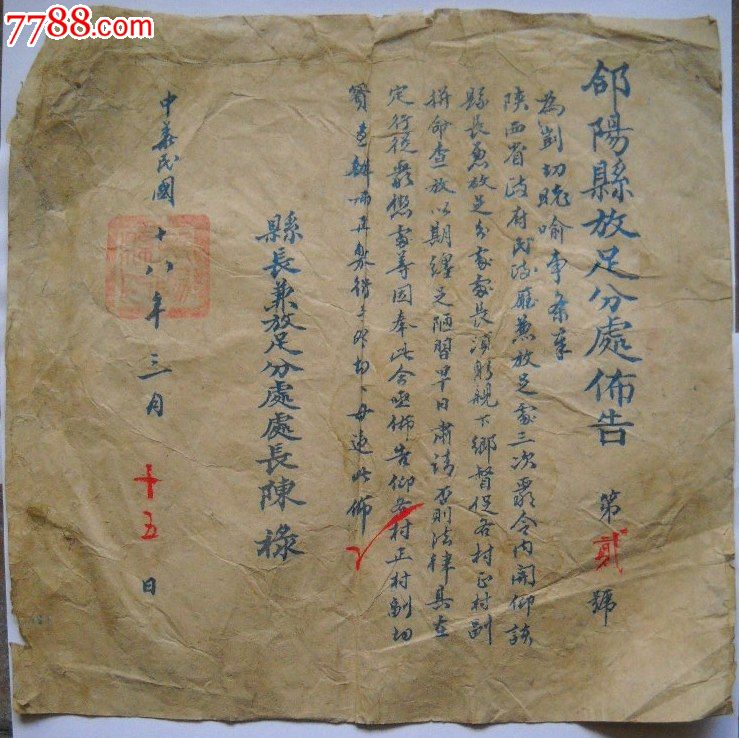 7788.com
郃陽縣放足分處佈告
第貳號
為剴切曉喻事案奉
陝西省政府民政廳兼放足處三次嚴令內開仰該
縣長兼放足分處處長須躬親下鄉督促各村正村副
拼命查放以期纏足陋習早日肅清否則法律具在
定行從嚴懲處等因奉此合亟佈告仰各村正村副切
實查辦毋違此佈
縣長兼放足分處處長陳祿
中華民國十八年三月十五日